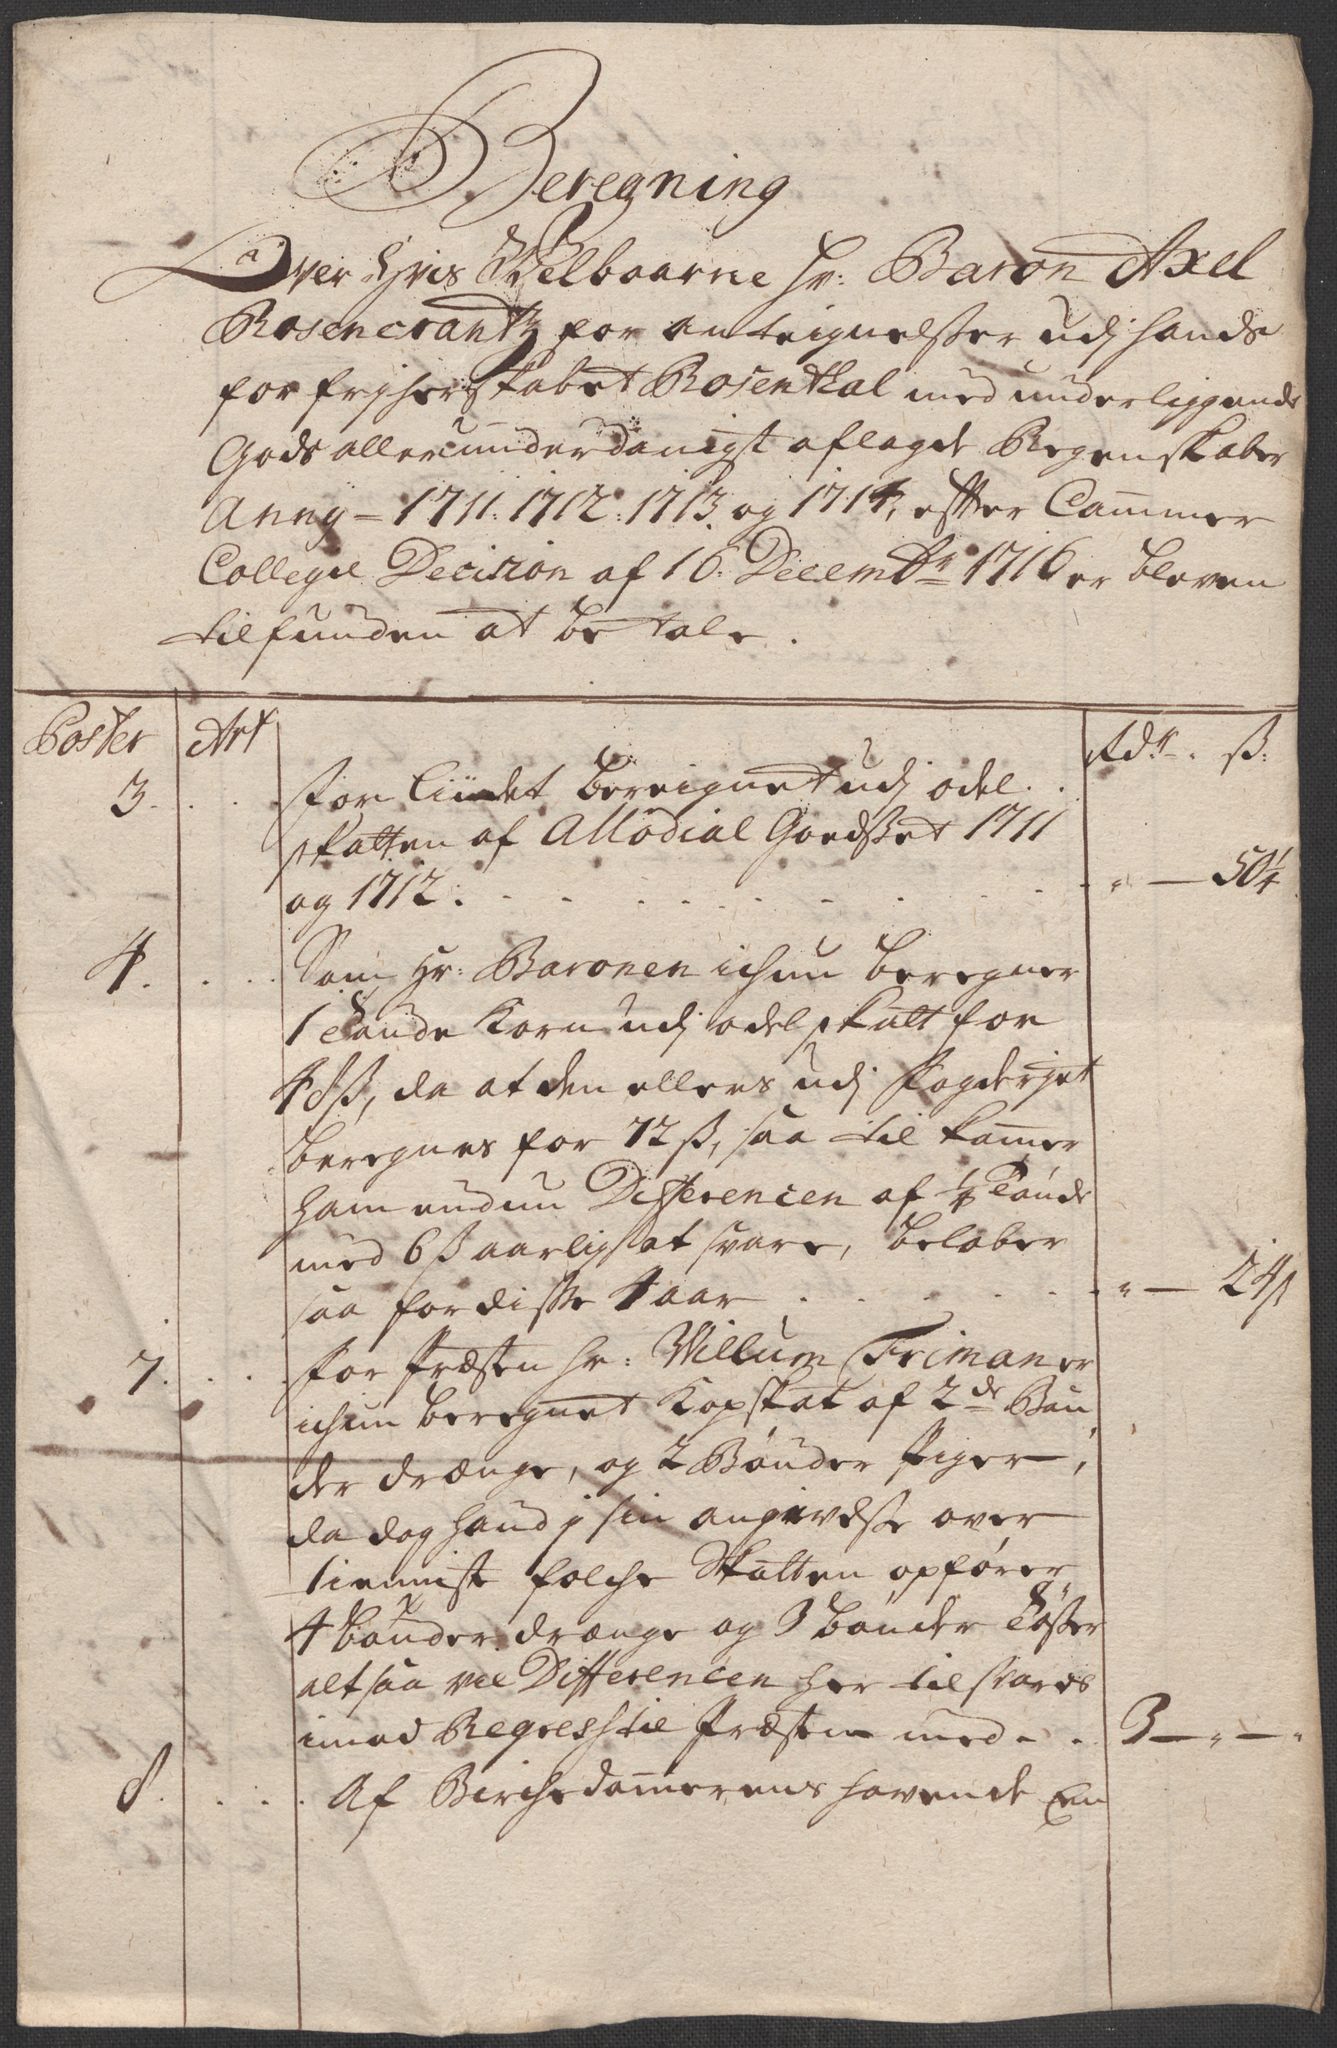 Beregning
Over Hvis Welbaarne Hr: Baron Axel
Rosencrantz for anteignelsser udj hands
for frjherskabet Rosenthal med underliggende
Gods allerunderdanigst aflagde Regenskaber
Anny – 1711. 1712. 1713. og 1714, effter Cammer
Collegii Decision af 16. Decembr 1716 er bleven
tilfunden at betale.
Poster Art Rdr. ß:
3. . . For Liudet bereignet udj odel . .
skatten af Allodial Goedsset 1711
og 1712 : . . . . . . . . „ — 50 1/4
4. . . Som Hr: Baronen ichun beregner
1 Tønde Korn udj odelskatt for
48 ß, da at den ellers udj Fogderjet
beregnes for 72 ß, saa til kommer
ham endnu Differencen af 1/4 Tønde
med 6 ß aarligst at svare, beløber
saa for disse 4 aar . . . . . „ — 24 ß
7. . . For Præsten hr: Willum Friman er
ichun beregnet Kopskat af 2de Bøn
der drænge, og 2 Bønder Piger,
da dog hand j sin angivelsse over
tienniste folche Skatten opfører
4 bønder drænge og 3 bønder Tøsser
alt saa vel Differencen her til svares
imod Regress til Præsten med . . 3 — „ — „
8. . . . Af Birchedommerens havende En